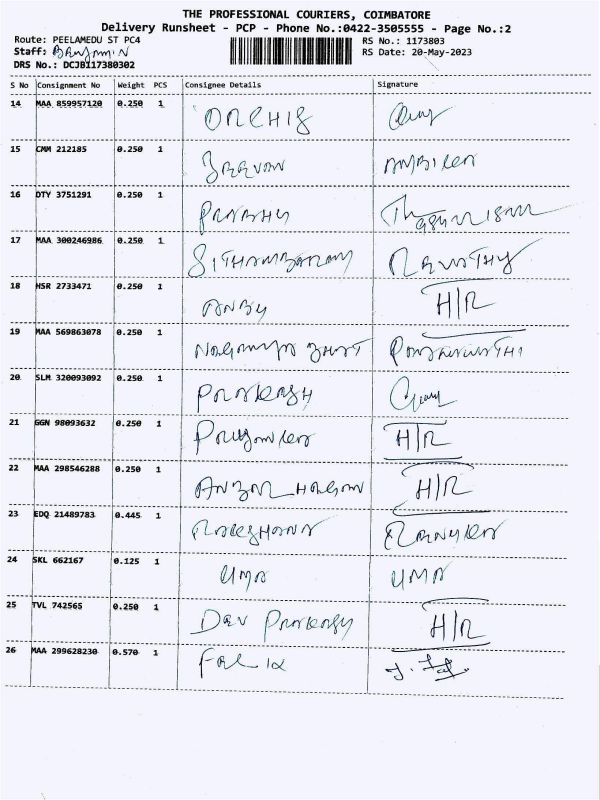 THE PROFESSIONAL COURIERS, COIMBATORE
Delivery Runsheet - PCP - Phone No.:0422-3505555 - Page No.:2
Route: PEELAMEDU ST PC4 RS No.: 1173803
Staff: BENJAMIN RS Date: 20-May-2023
DRS No.: DCJB117380302
S No Consignment No Weight PCS Consignee Details Signature
14 MAA 859957120 0.250 1 ORCHIS
15 CMM 212185 0.250 1 JEEVAN
16 DTY 3751291 0.250 1 PRABHU
17 MAA 300246986 0.250 1 SITHAMBARAM REVATHY
18 HSR 2733471 0.250 1 ANBU H/R
19 MAA 569863078 0.250 1
20 SLM 320093092 0.250 1 PRAKASH
21 GGN 98093632 0.250 1 PRIYANKA H/R
22 MAA 298546288 0.250 1 H/R
23 EDQ 21489783 0.445 1
24 SKL 662167 0.125 1 UMA UMA
25 TVL 742565 0.250 1 DEV PRAKASH H/R
26 MAA 299628230 0.570 1 FELIX